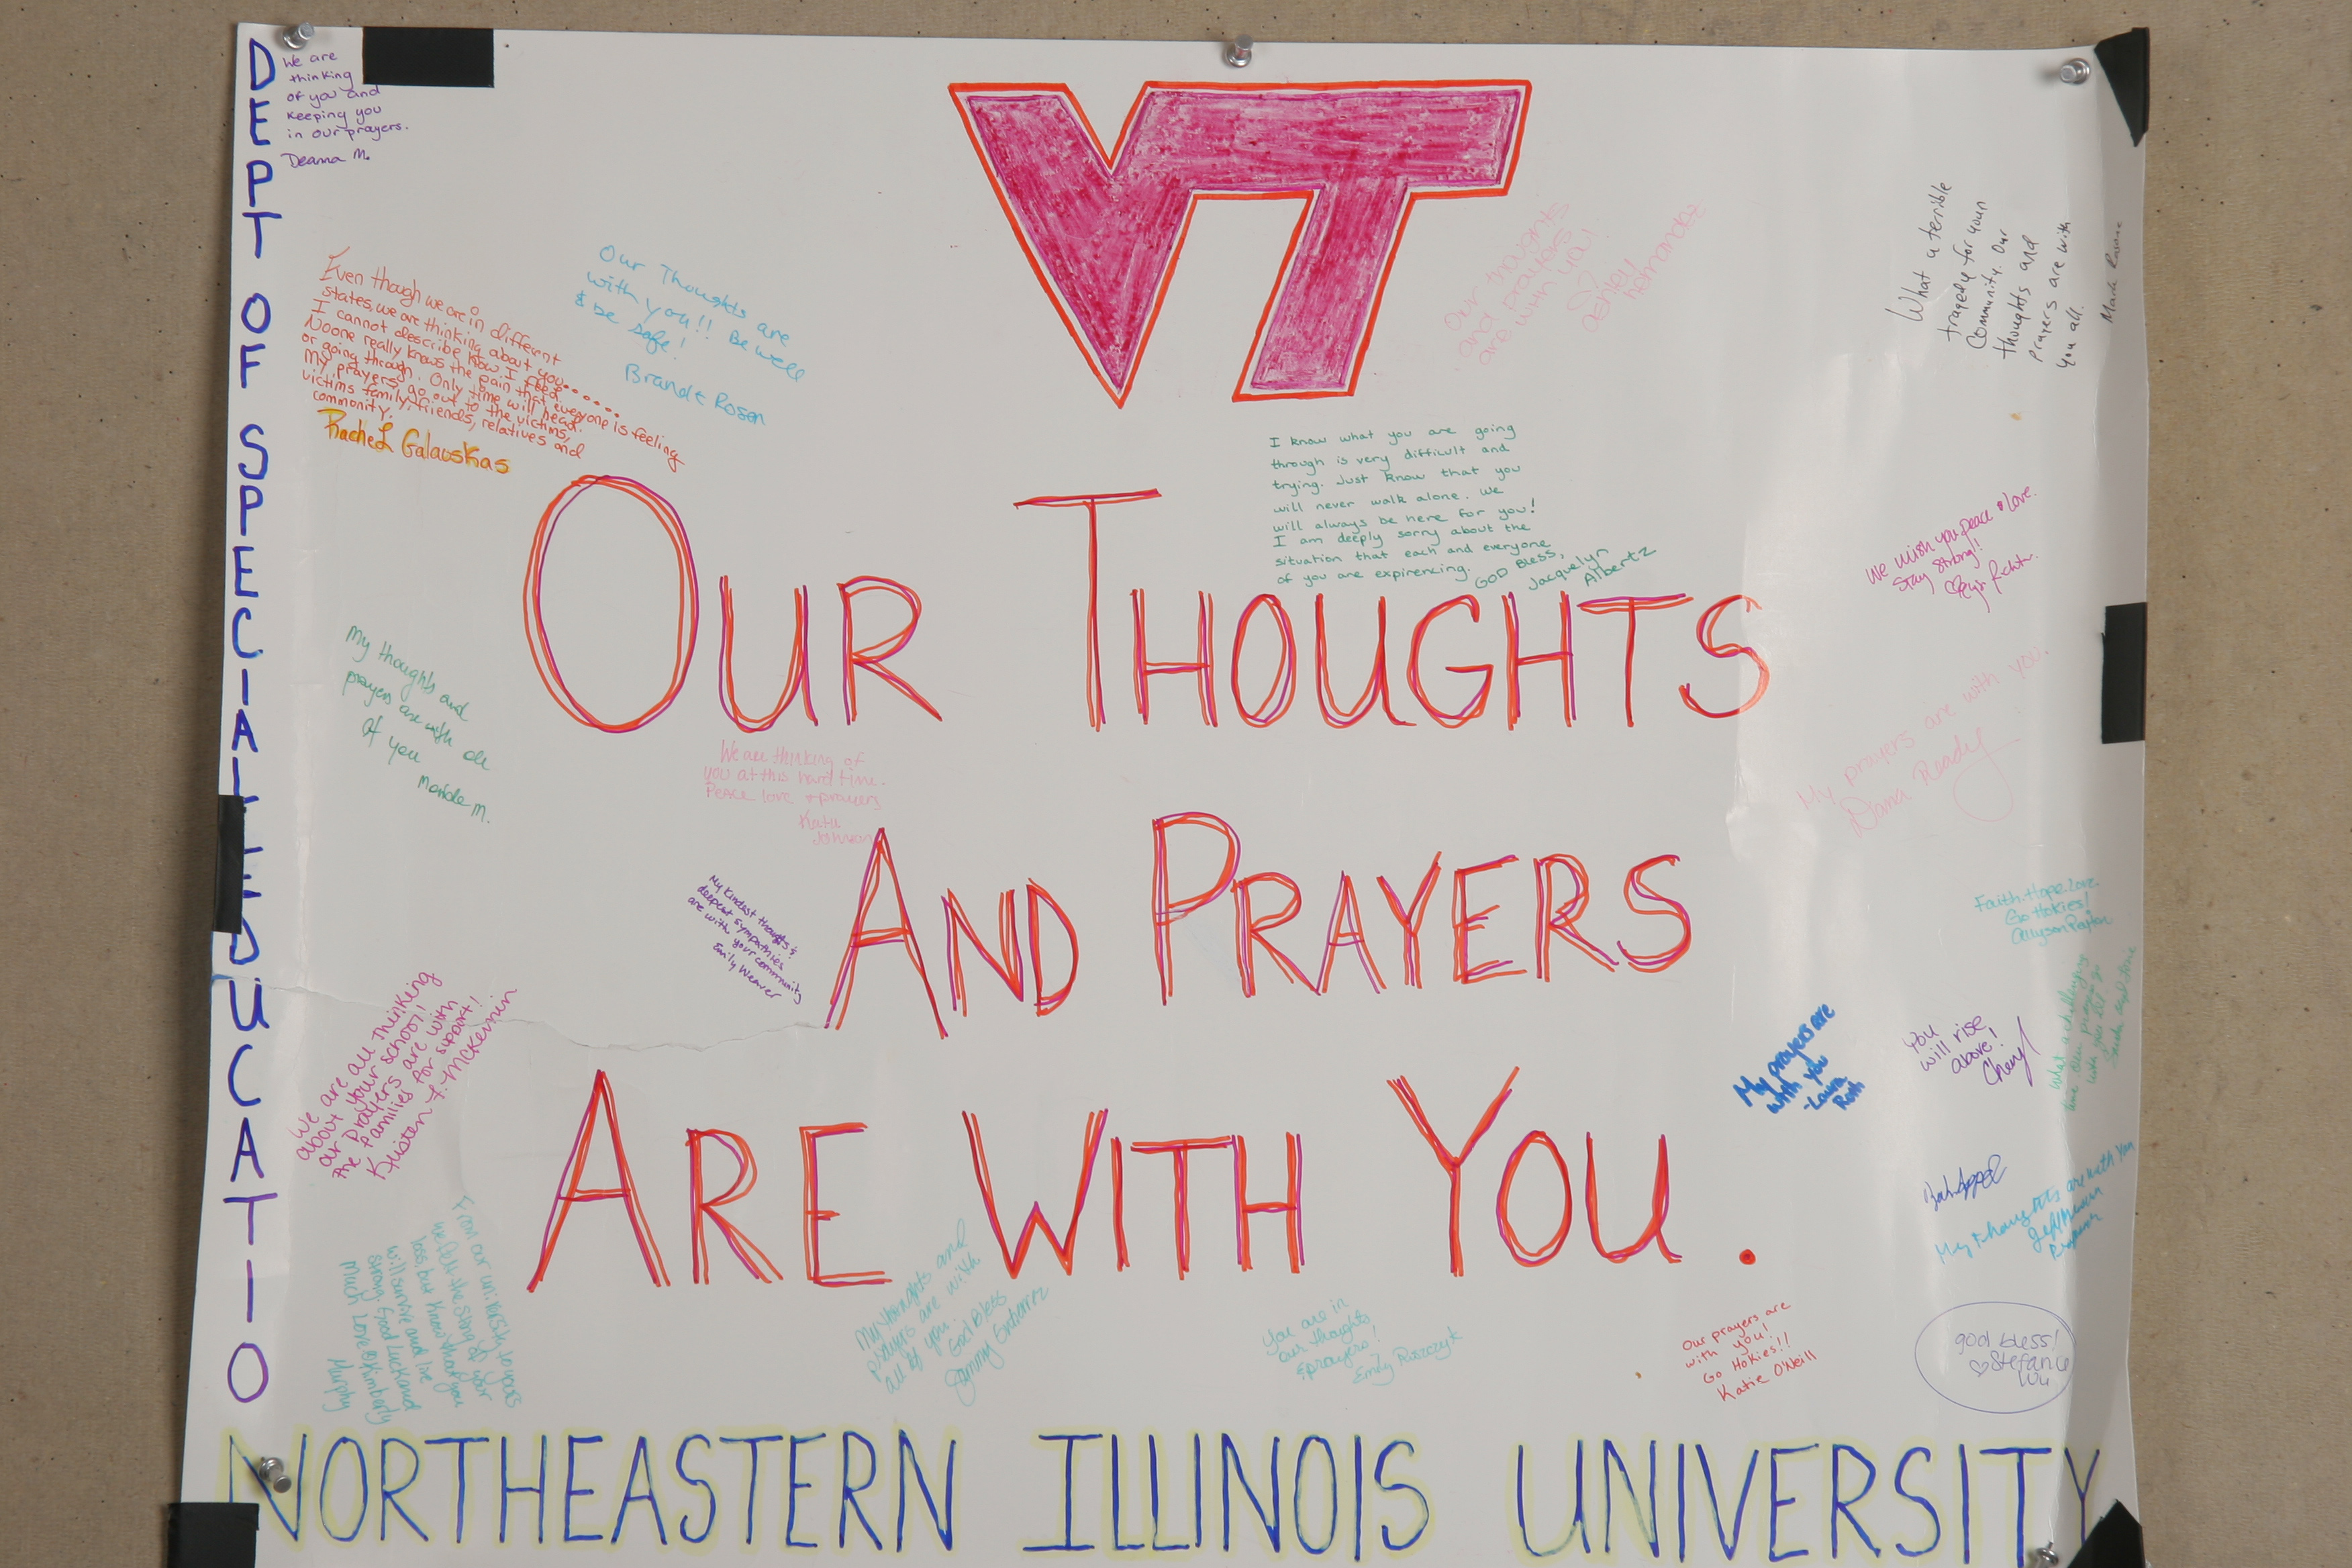 DEPT OF SPECIAL EDUCATIO
We are
thinking
of you and
keeping you
in our prayers.
Deanna M.
VT
Even though we are in different
states, we are thinking about you......
I cannot describe how I feel.
Noone really knows the pain that everyone is feeling
or going through. Only time will heal.
My prayers go out to the victims,
victims family, friends, relatives and
community.
Rachel Galauskas
Our Thoughts are
with you!! Be well
& be safe!
Brandt Rosen
Our thoughts
and prayers
are with you!
Ashley
Hernandez
What a terrible
tragedy for your
Community. Our
thoughts and
prayers are with
you all.
Mark
I know what you are going
through is very difficult and
trying. Just know that you
will never walk alone. We
will always be here for you!
I am deeply sorry about the
situation that each and everyone
of you are expirencing.
GOD Bless,
Jacquelyn
Albertz
OUR THOUGHTS
We wish you peace & love.
Stay strong!!
My thoughts and
prayers are with all
of you
M.
We are thinking of
you at this hard time.
Peace love & prayers
Katie
Johnson
My prayers are with you.
Dana Ready
AND PRAYERS
My kindest thoughts &
deepest sympathies
are with your community
Emily Weaver
Faith. Hope. Love.
Go Hokies!
We are all thinking
about your school!!
Our Prayers are with
the families for support!
Kristen F. McKernin
My prayers are
with you
-Laura
Roth
You
will rise
above!
Cheryl
What a challenging
time
ARE WITH YOU.
My thoughts are with you
Jeff
From our university to yours
we felt the sting of your
loss, but know that you
will survive and live
strong. Good luck and
Much Love Kimberly
Murphy
My thoughts and
prayers are with
all of you.
God Bless
You are in
our thoughts
& prayers!
Emily
Our prayers are
with you!
Go Hokies!!
Katie O'Neill
god bless!
Stefanie
NORTHEASTERN ILLINOIS UNIVERSITY